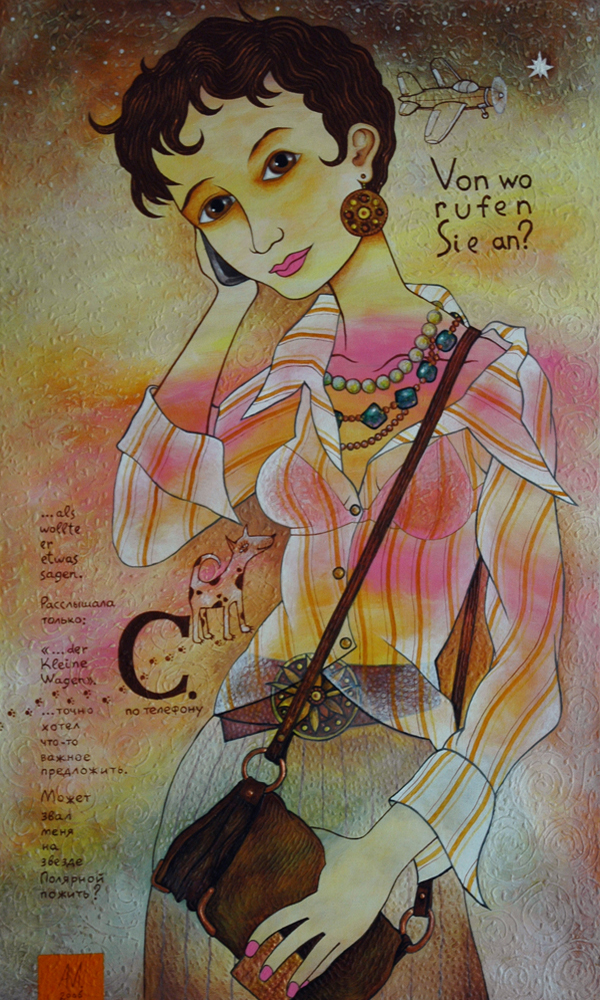 Von wo
rufen
Sie an?
...als
wollte
er
etwas
sagen.
Расслышала
только:
«...der
Kleine
Wagen».
С.
по телефону
...точно
хотел
что-то
важное
предложить.
Может
звал
меня
на
звезде
Полярной
пожить?
АМ